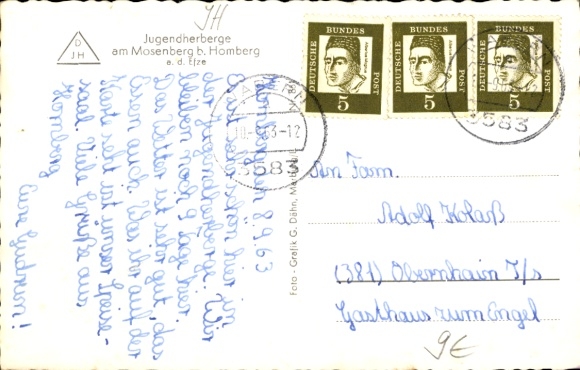 JH
Jugendherberge
am Mosenberg b. Homberg
a. d. Efze
D
JH
DEUTSCHE BUNDES POST
5
DEUTSCHE BUNDES POST
5
DEUTSCHE BUNDES POST
5
3583
3583
Homberg, den 8.9.63
Es ist sehr schön hier in
der Jugendherberge. Wir
bleiben noch 9 Tage hier.
Das Wetter ist sehr gut, das
Essen auch. Was ihr auf der
Karte seht ist unser Speise-
saal. Viele Grüße aus
Homberg
Eure Gudrun!
Foto - Grafik G. Dähn,
An Fam.
Adolf Kolaß
(381) Obernhain T/s
Gasthaus zum Engel
9€